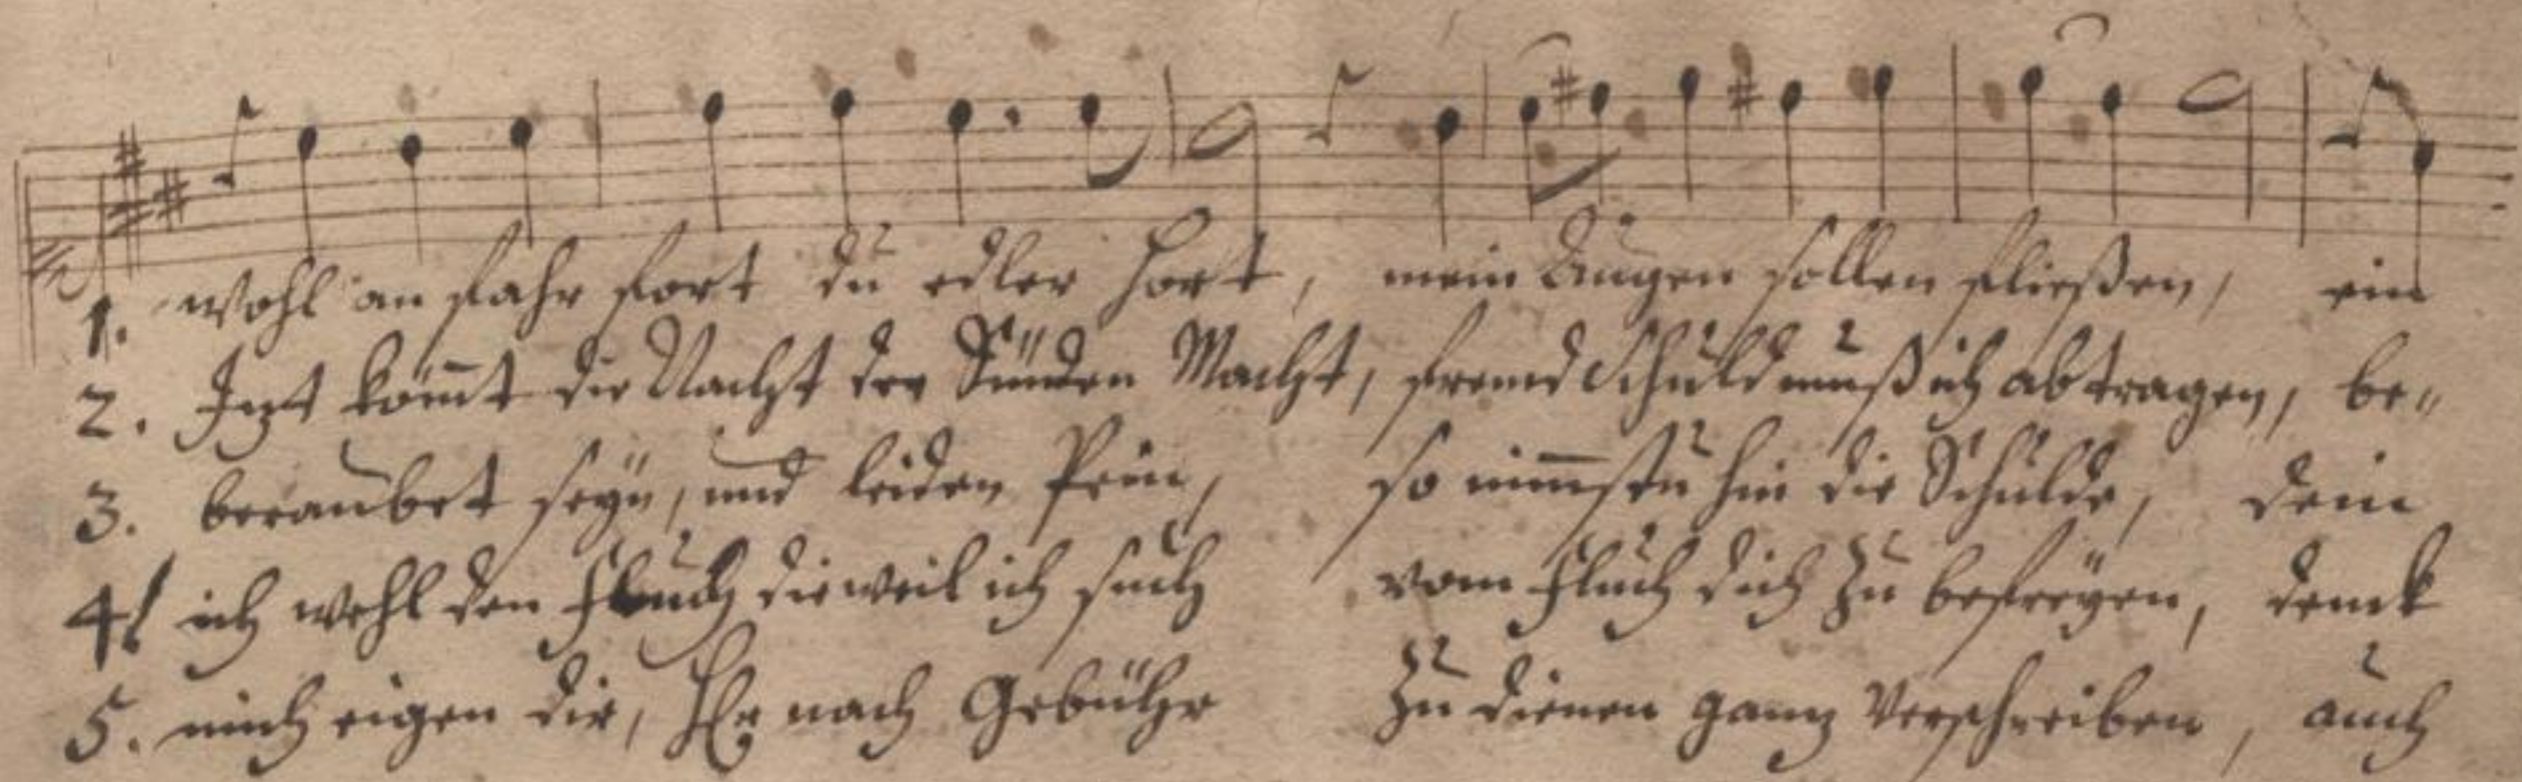 1. wohl an fahr fort du edler Hort, mein Augen sollen fließen, ein
2. Jezt kom̄t die Nacht der Sünden Macht, fremd Schuld muß ich abtragen, be„
3. beraubet seyn, und leiden Pein, so nim̄stu hin die Schulde, dein
4 ich wehl den Fluch dieweil ich such vom Fluch dich zu befreyen, denck
5. mich eigen dir, HEr nach Gebühr zu dienen ganz verschreiben, auch